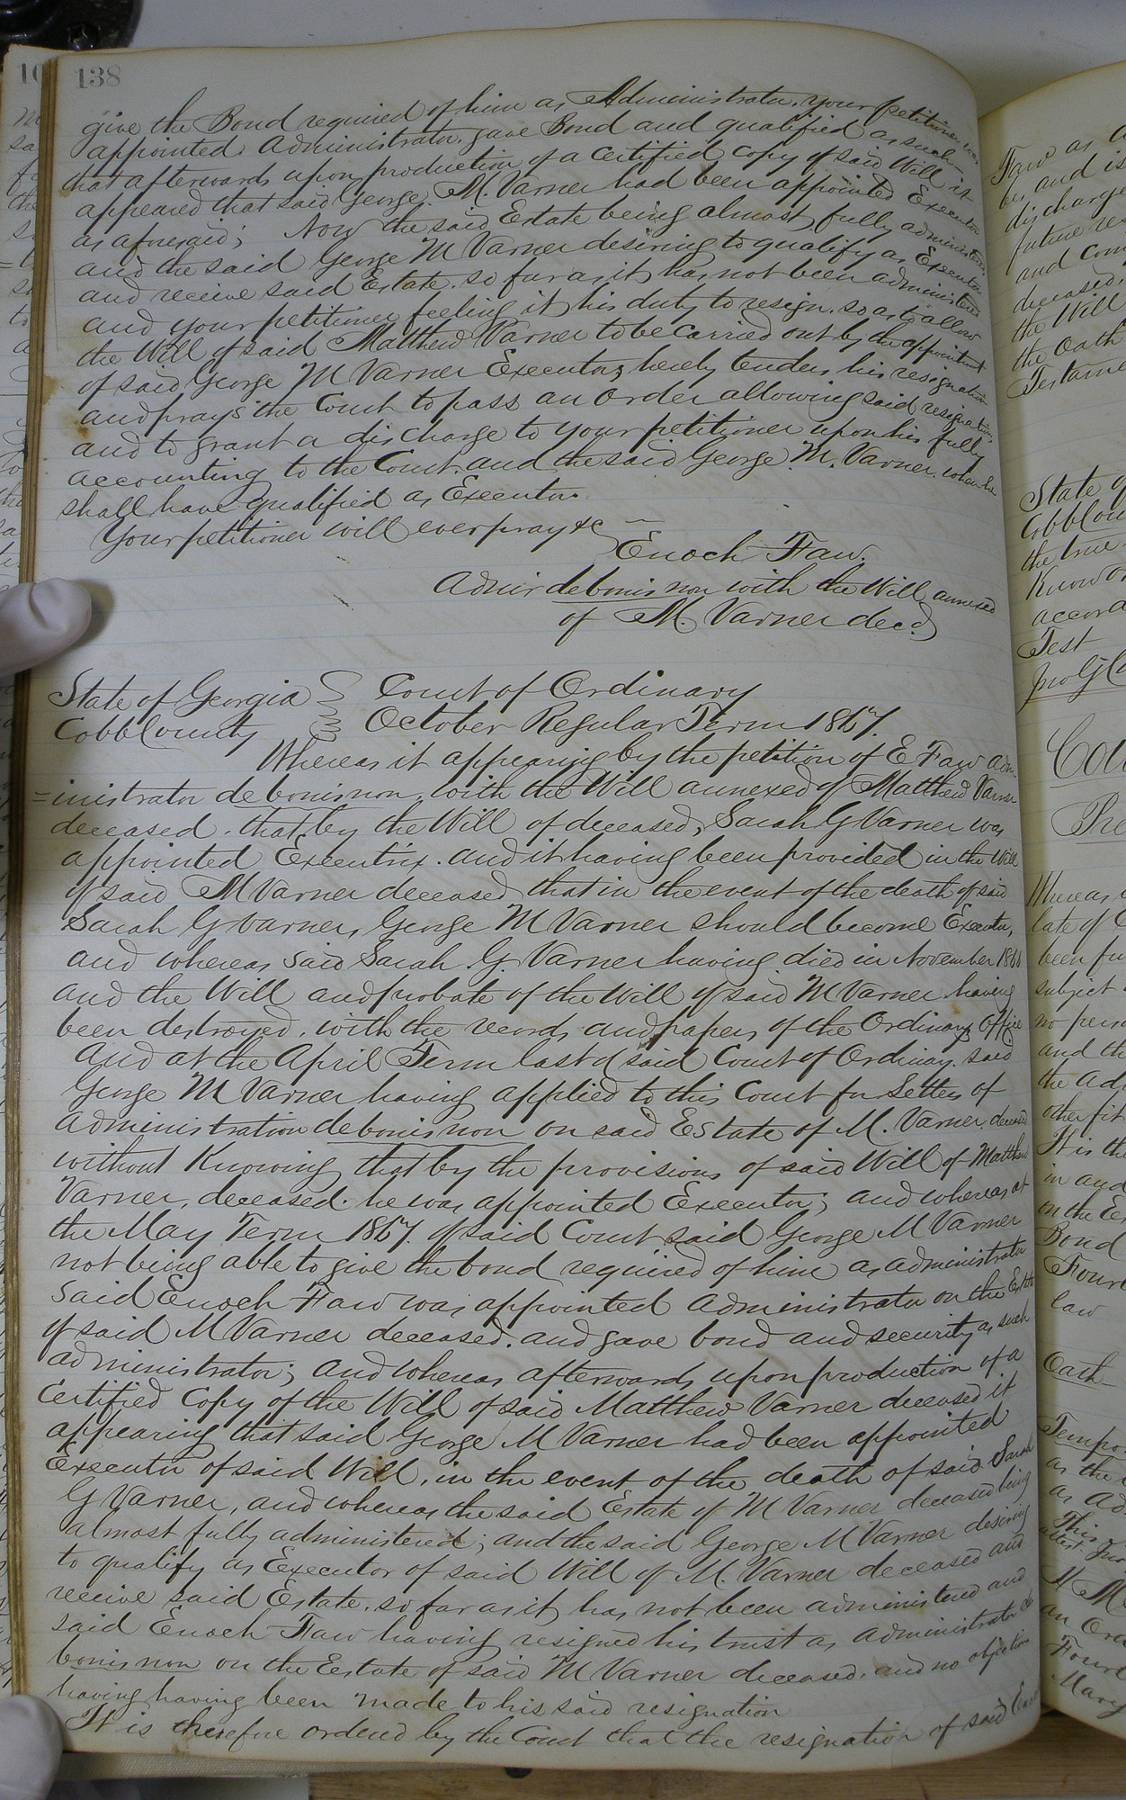 138
give the Bond required of him as Administrator. Your petitioner was
appointed Administrator. gave Bond and qualified as such.
that afterwards upon production of a certified copy of said Will it
appeared that said George M. Varner had been appointed Executor
as aforesaid; Now the said Estate being almost fully administered
and the said George M Varner desiring to qualify as Executor
and receive said Estate. so far as it has not been administered
and your petitioner feeling it his duty to resign. so as to allow
the Will of said Matthew Varner to be carried out by the appointment
of said George M Varner Executor, hereby tenders his resignation
and prays the Court to pass an order allowing said resignation.
and to grant a discharge to your petitioner upon his fully
accounting to the Court. and the said George M. Varner. when he
shall have qualified as Executor.
Your petitioner will ever pray &c
Enoch Faw.
Admr de bonis non with the Will annexed
of M. Varner decd
State of Georgia Court of Ordinary
Cobb County October Regular Term 1867.
Whereas it appearing by the petition of E Faw Adm-
=inistrator de bonis non. with the Will annexed of Matthew Varner
deceased. that by the Will of deceased, Sarah G Varner was
appointed Executrix. and it having been provided in the Will
of said M Varner deceased that in the event of the death of said
Sarah G Varner, George M Varner should become Executor,
and whereas said Sarah G. Varner having died in November 1866
and the Will and probate of the Will of said M Varner having
been destroyed. with the records and papers of the Ordinarys Office
And at the April Term last of said Court of Ordinary. said
George M Varner having applied to this Court for Letters of
Administration de bonis non on said Estate of M. Varner, deceased
without Knowing that by the provisions of said Will of Matthew
Varner, deceased. he was appointed Executor; and whereas at
the May Term 1867. of said Court said George M Varner
not being able to give the bond required of him as administrator
said Enoch Faw was appointed administrator on the Estate
of said M Varner deceased. and gave bond and security as such
administrator; and whereas afterwards upon production of a
Certified Copy of the Will of said Matthew Varner deceased it
appearing that said George M Varner had been appointed
Executor of said Will, in the event of the death of said Sarah
G Varner, and whereas the said Estate of M Varner deceased being
almost fully administered; and the said George M Varner desiring
to qualify as Executor of said Will of M. Varner deceased and
receive said Estate. so far as it has not been administered and
said Enoch Faw having resigned his trust as administrator de
bonis non on the Estate of said M Varner deceased. and no objection
having having been made to his said resignation
It is therefore ordered by the Court that the resignation of said